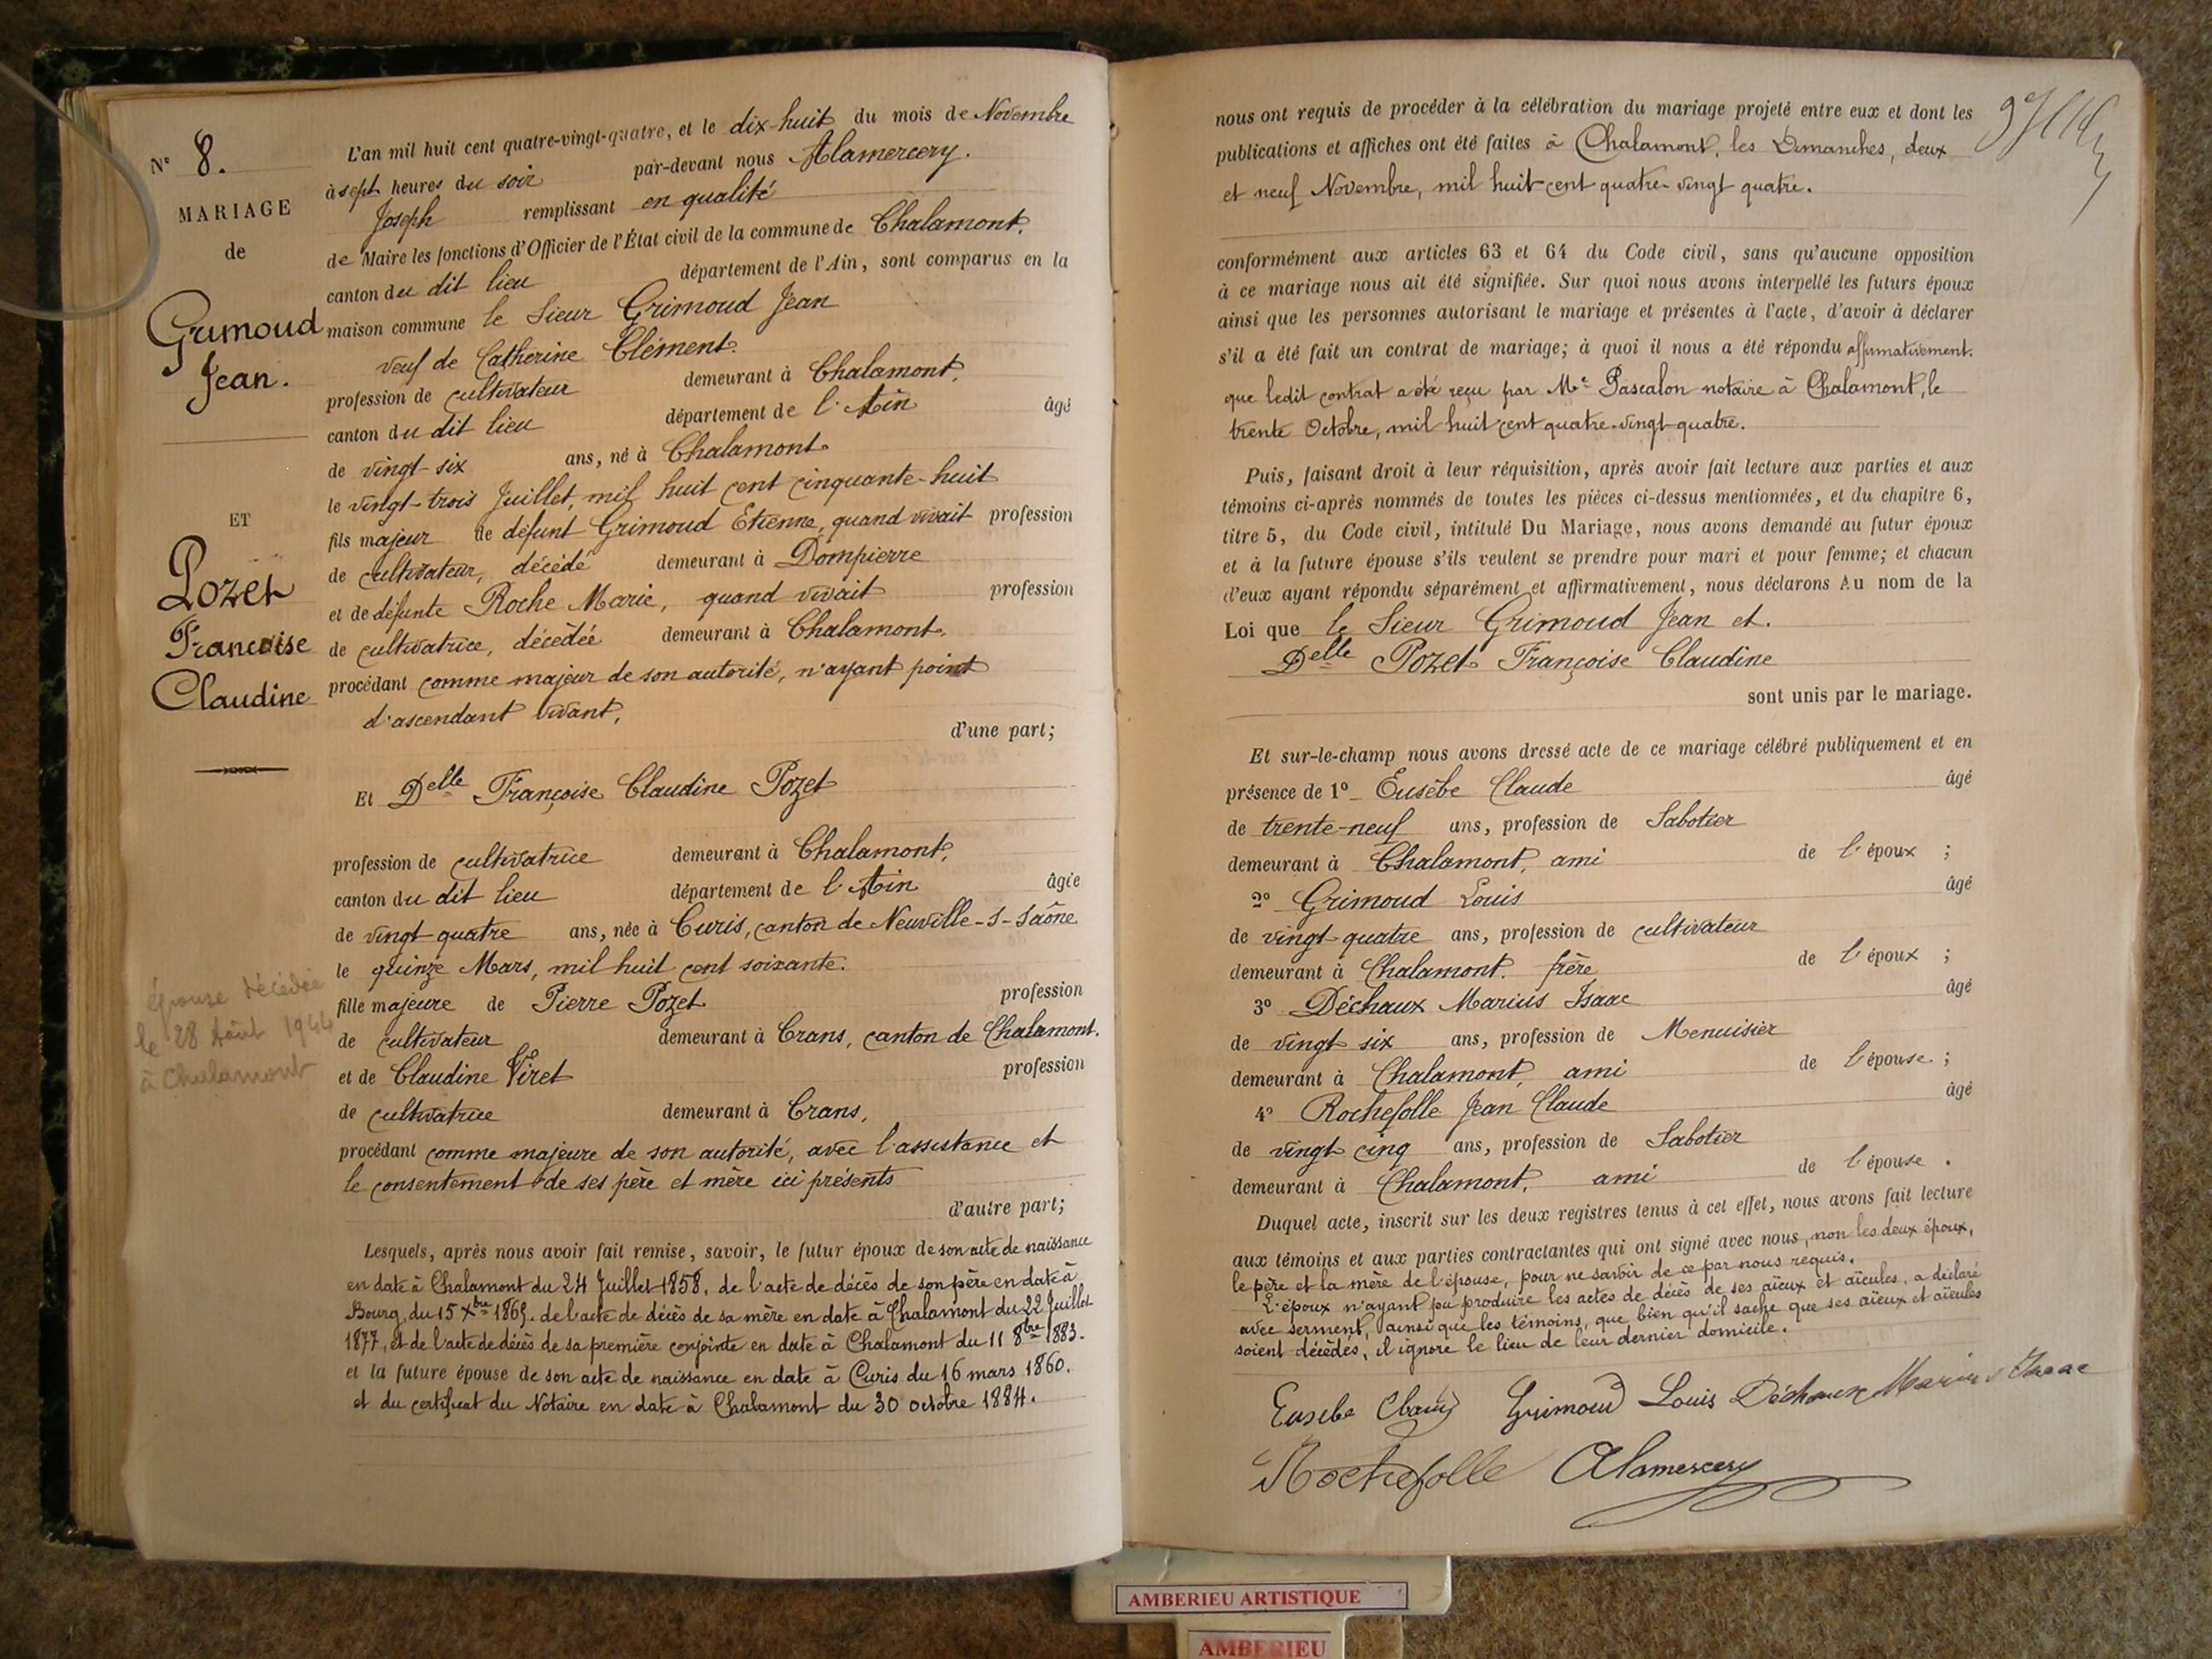 N° 8.
MARIAGE
de
Grimoud
Jean.
ET
Pozet
Françoise
Claudine
épouse décédée
le 28 Août 1944
à Chalamont
L'an mil huit cent quatre-vingt-quatre, et le dix-huit du mois de Novembre
à sept heures du soir par-devant nous Alamercery.
Joseph remplissant en qualité
de Maire les fonctions d'Officier de l'État civil de la commune de Chalamont,
canton du dit lieu département de l'Ain, sont comparus en la
maison commune le Sieur Grimoud Jean
veuf de Catherine Clément.
profession de cultivateur demeurant à Chalamont,
canton du dit lieu département de l'Ain âgé
de vingt-six ans, né à Chalamont.
le vingt-trois Juillet, mil huit cent cinquante-huit
fils majeur de défunt Grimoud Etienne, quand vivait profession
de cultivateur, décédé demeurant à Dompierre
et de défunte Roche Marie, quand vivait profession
de cultivatrice, décédée demeurant à Chalamont.
procédant comme majeur de son autorité, n'ayant point
d'ascendant vivant,
d'une part;
Et Delle Françoise Claudine Pozet
profession de cultivatrice demeurant à Chalamont,
canton du dit lieu département de l'Ain âgée
de vingt-quatre ans, née à Curis, canton de Neuville-s-Saône
le quinze Mars, mil huit cent soixante.
fille majeure de Pierre Pozet profession
de cultivateur demeurant à Crans, canton de Chalamont.
et de Claudine Viret profession
de cultivatrice demeurant à Crans,
procédant comme majeure de son autorité, avec l'assistance et
le consentement de ses père et mère ici présents
d'autre part;
Lesquels, après nous avoir fait remise, savoir, le futur époux de son acte de naissance
en date à Chalamont du 24 Juillet 1858, de l'acte de décès de son père en date à
Bourg, du 15 Xbre 1869. de l'acte de décès de sa mère en date à Chalamont du 22 Juillet
1877, et de l'acte de décès de sa première conjointe en date à Chalamont du 11 8bre 1883.
et la future épouse de son acte de naissance en date à Curis du 16 mars 1860.
et du certificat du Notaire en date à Chalamont du 30 octobre 1884.
nous ont requis de procéder à la célébration du mariage projeté entre eux et dont les
publications et affiches ont été faites à Chalamont, les Dimanches, deux
et neuf Novembre, mil huit-cent quatre-vingt quatre.
conformément aux articles 63 et 64 du Code civil, sans qu'aucune opposition
à ce mariage nous ait été signifiée. Sur quoi nous avons interpellé les futurs époux
ainsi que les personnes autorisant le mariage et présentes à l'acte, d'avoir à déclarer
s'il a été fait un contrat de mariage; à quoi il nous a été répondu affirmativement.
que ledit contrat a été reçu par Me Pascalon notaire à Chalamont, le
trente Octobre, mil huit cent quatre-vingt-quatre.
Puis, faisant droit à leur réquisition, après avoir fait lecture aux parties et aux
témoins ci-après nommés de toutes les pièces ci-dessus mentionnées, et du chapitre 6,
titre 5, du Code civil, intitulé Du Mariage, nous avons demandé au futur époux
et à la future épouse s'ils veulent se prendre pour mari et pour femme; et chacun
d'eux ayant répondu séparément et affirmativement, nous déclarons Au nom de la
Loi que le Sieur Grimoud Jean et.
Delle Pozet Françoise Claudine
sont unis par le mariage.
Et sur-le-champ nous avons dressé acte de ce mariage célébré publiquement et en
présence de 1° Eusèbe Claude âgé
de trente-neuf ans, profession de Sabotier
demeurant à Chalamont, ami de l'époux ;
2° Grimoud Louis âgé
de vingt quatre ans, profession de cultivateur
demeurant à Chalamont. frère de l'époux ;
3° Déchaux Marius Isaac âgé
de vingt six ans, profession de Menuisier
demeurant à Chalamont, ami de l'épouse ;
4° Rochefolle Jean Claude âgé
de vingt cinq ans, profession de Sabotier
demeurant à Chalamont, ami de l'épouse .
Duquel acte, inscrit sur les deux registres tenus à cet effet, nous avons fait lecture
aux témoins et aux parties contractantes qui ont signé avec nous, non les deux époux,
le père et la mère de l'épouse, pour ne savoir de ce par nous requis.
L'époux n'ayant pu produire les actes de décès de ses aïeux et aïeules, a déclaré
avec serment, ainsi que les témoins, que bien qu'il sache que ses aïeux et aïeules
soient décédés, il ignore le lieu de leur dernier domicile.
Eusebe Claude Grimoud Louis Déchaux Marius Isaac
Rochefolle Alamercery
AMBERIEU ARTISTIQUE
AMBERIEU